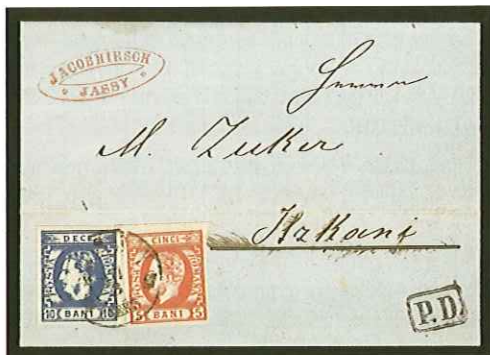 JACOB HIRSCH
JASSY
Herrn
M. Zuker
Itzkani
DECE
10 BANI 10
CINCI
5 BANI 5
P.D.